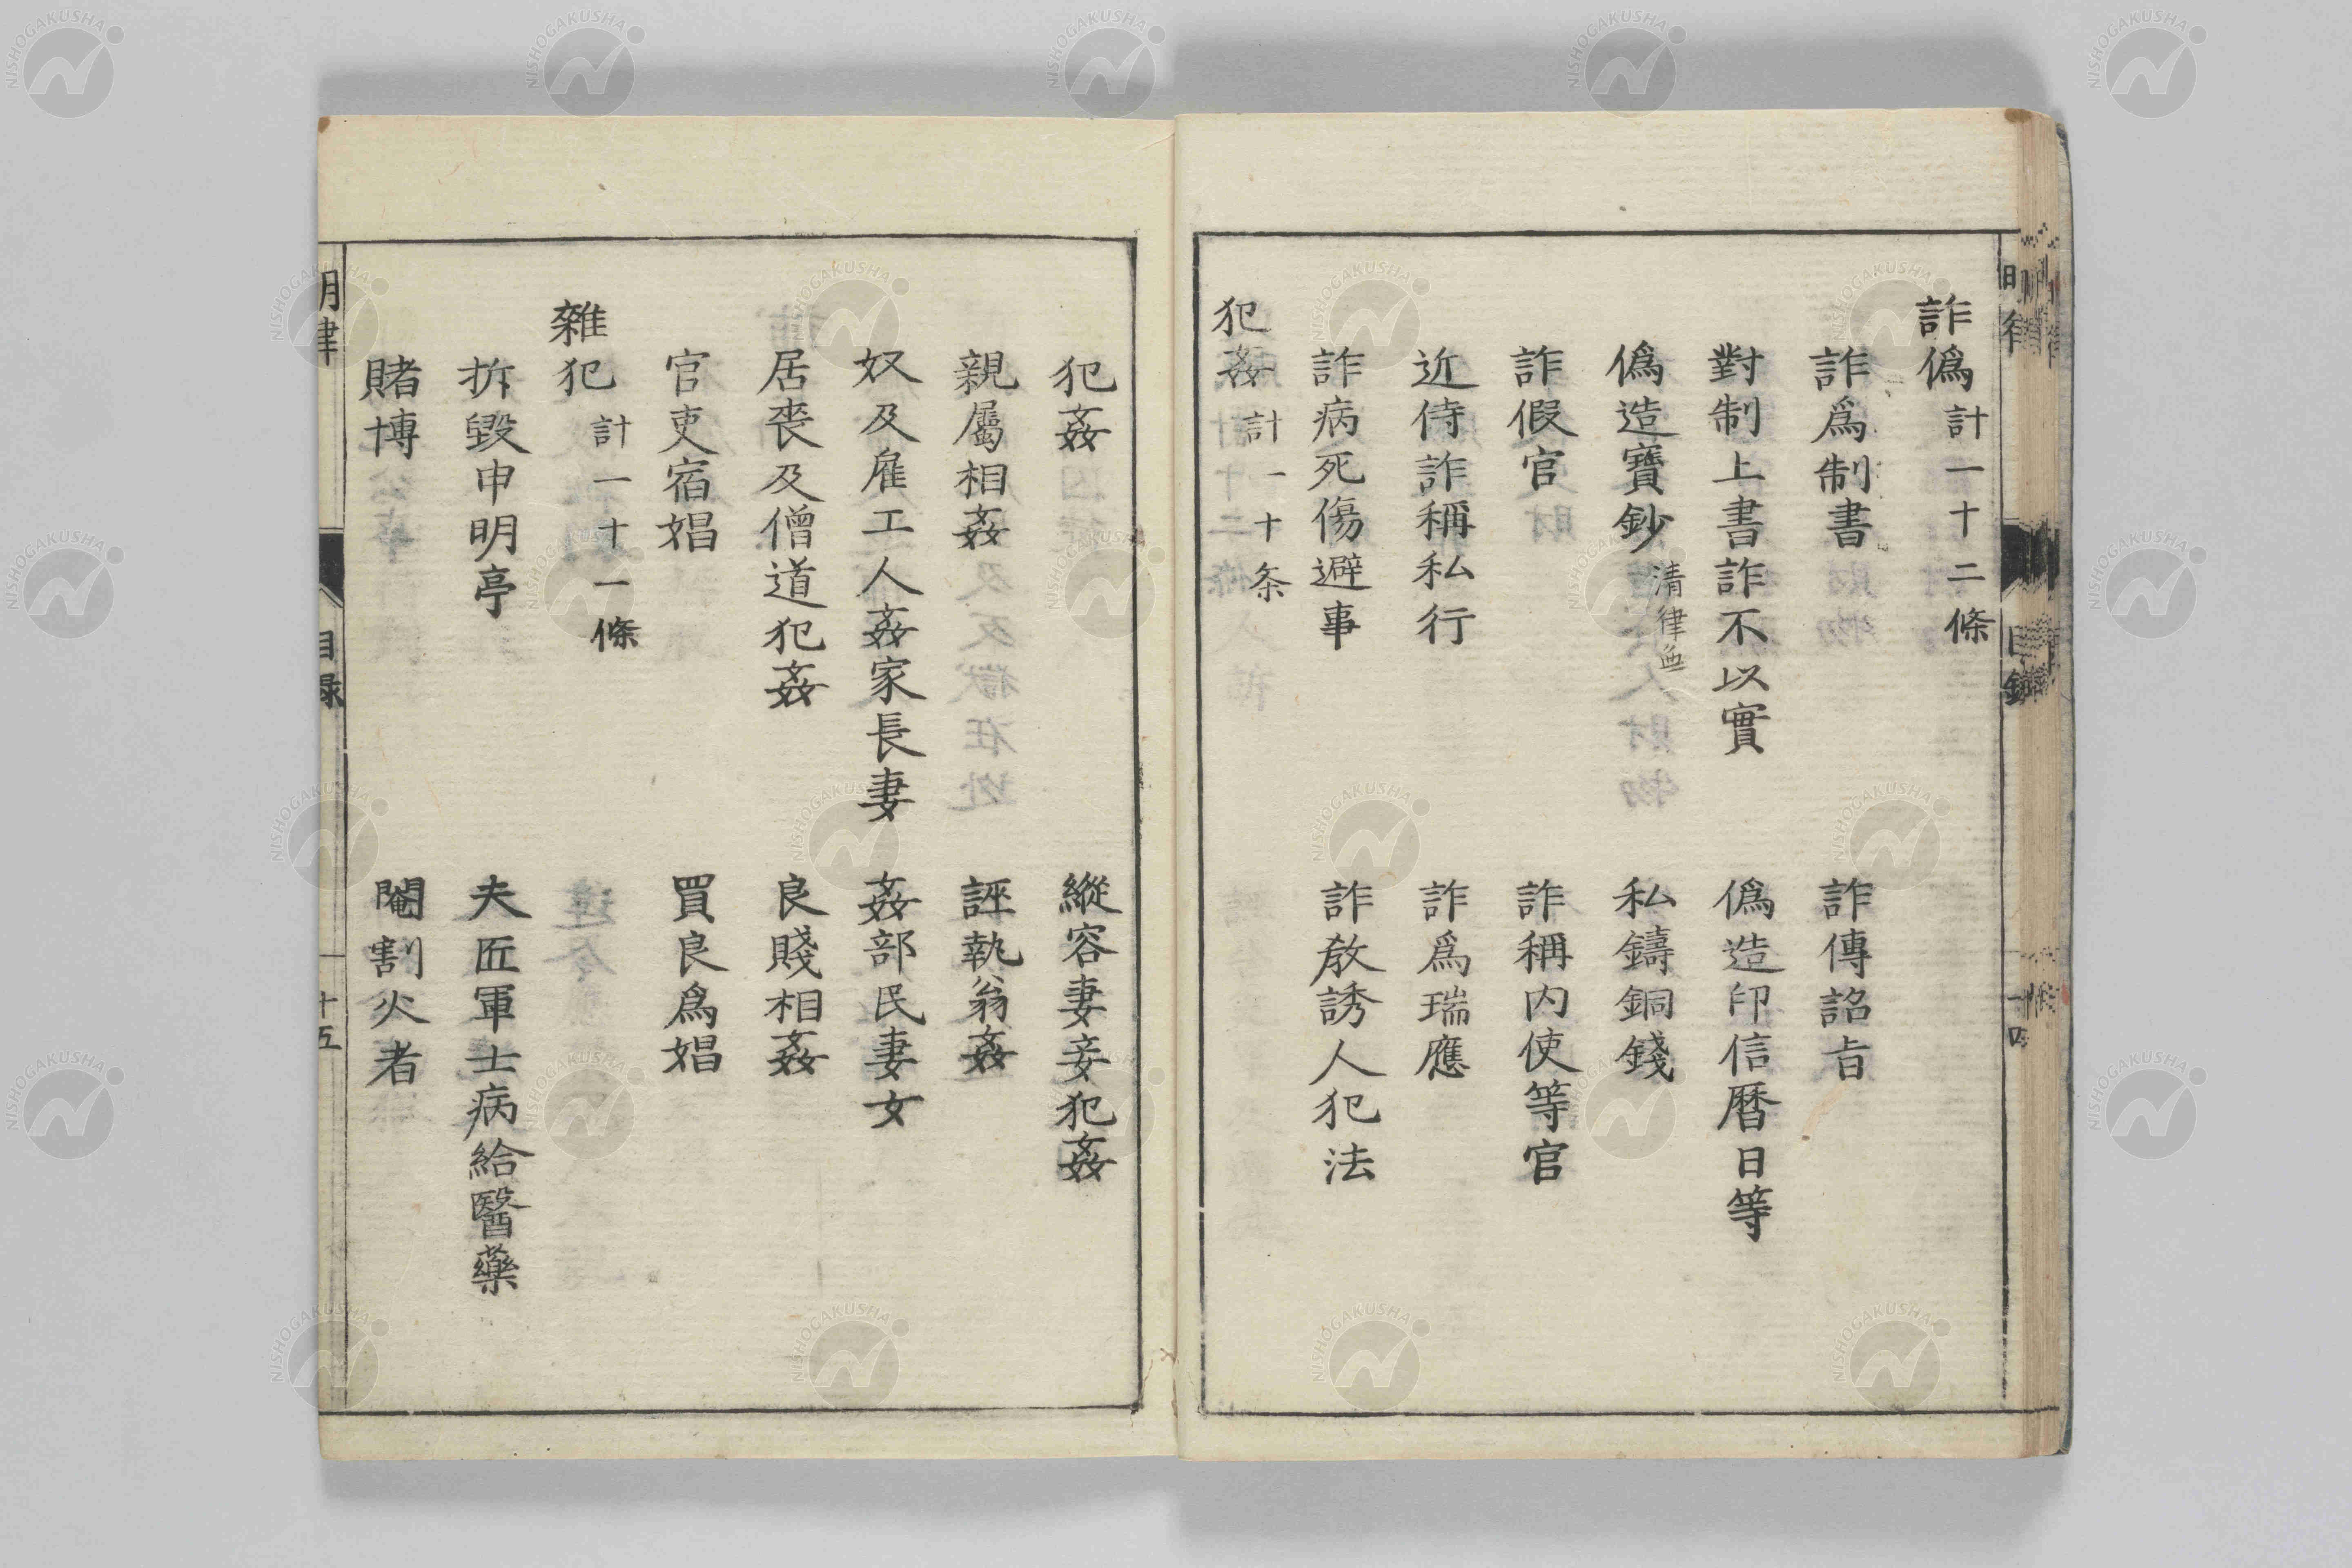 詐僞計一十二條
詐爲制書 詐傳詔旨
對制上書詐不以實 僞造印信曆日等
僞造寶鈔 清律無 私鑄銅錢
詐假官 詐稱内使等官
近侍詐稱私行 詐爲瑞應
詐病死傷避事 詐教誘人犯法
犯姦計一十条
犯姦 縱容妻妾犯姦
親屬相姦 誣執翁姦
奴及雇工人姦家長妻 姦部民妻女
居喪及僧道犯姦 良賤相姦
官吏宿娼 買良爲娼
雜犯計一十一條
拆毀申明亭 夫匠軍士病給醫藥
賭博 閹割火者
明律 目録 十五
NISHOGAKUSHA